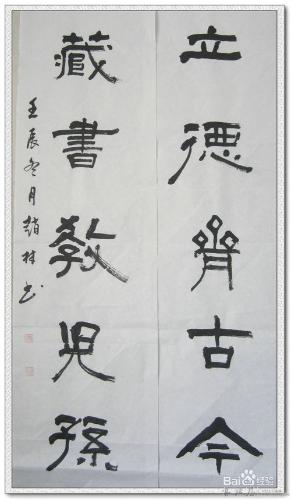 立德齊古今
藏書教兒孫
壬辰冬月趙林书
Bai百度经验